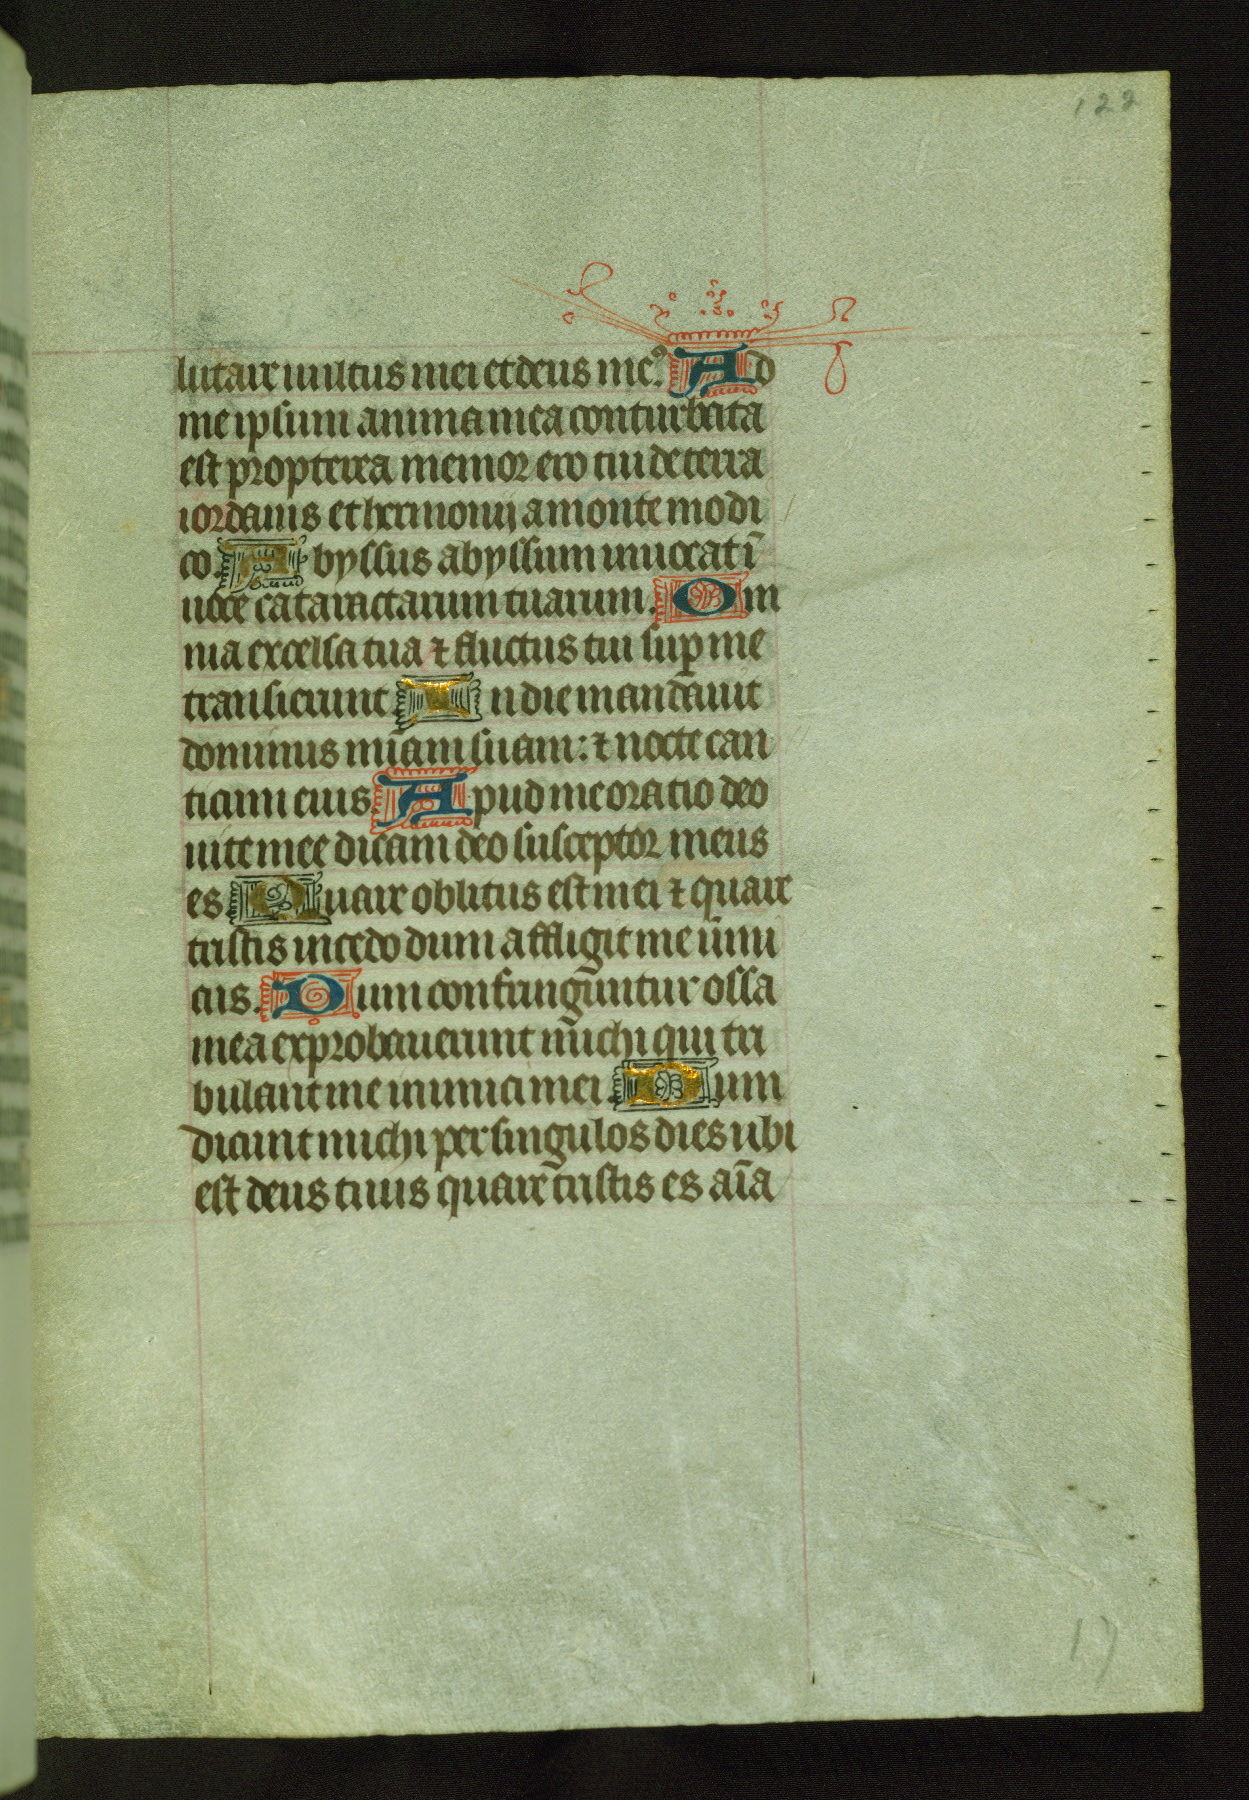 122
lutare uultus mei et deus me⁹. Ad
me ipsum anima mea conturbata
est propterea memor ero tui de terra
iordanis et hermonij a monte modi
co. Abyssus abyssum inuocat ī
uoce cataractarum tuarum. Om
nia excelsa tua ⁊ fluctus tui sup̄ me
transierunt In die mandauit
dominus mīam suam: ⁊ nocte can
ticum eius. Apud me oratio deo
uite mee dicam deo susceptor meus
es Quare oblitus est mei ⁊ quare
tristis incedo dum affligit me inimi
cus. Dum confringuntur ossa
mea exprobauerunt michi qui tri
bulant me inimici mei Dum
dicunt michi per singulos dies ubi
est deus tuus quare tristis es aīa
17